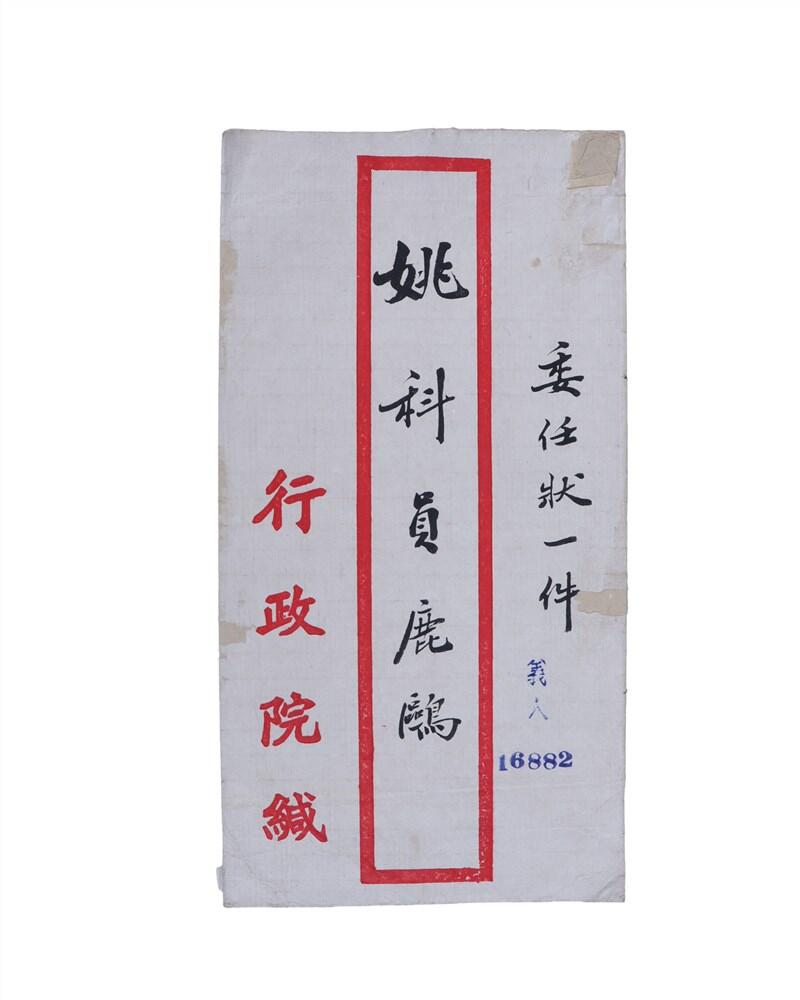 委任狀一件
義人
16882
姚科員鹿鷗
行政院緘